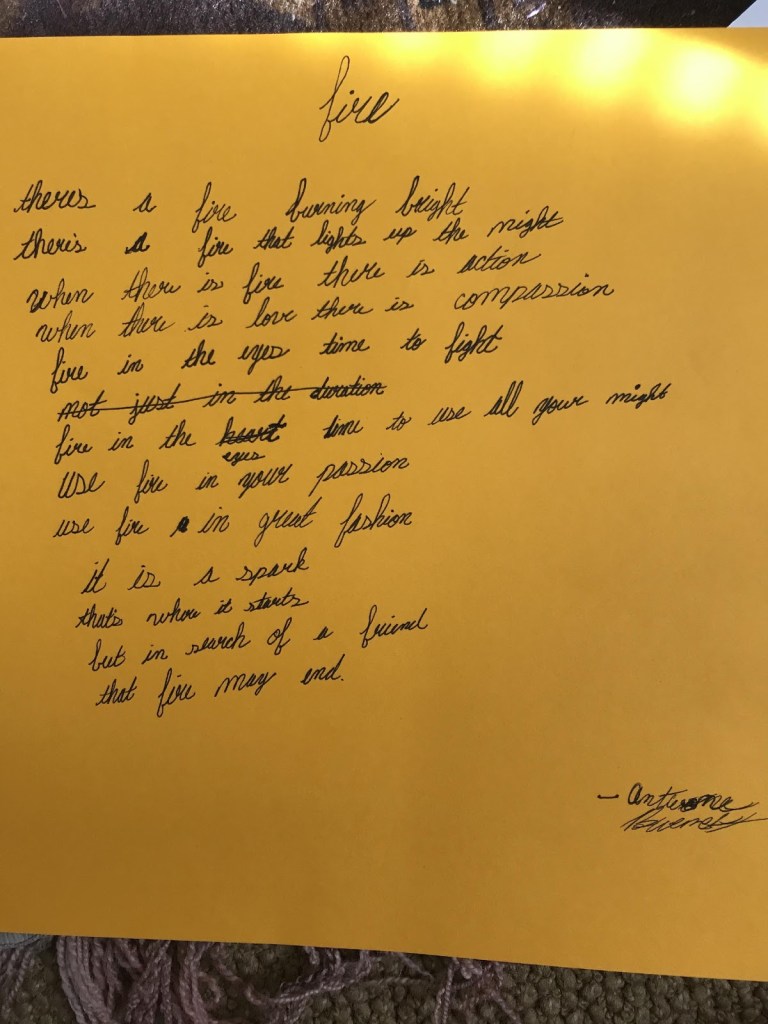 fire
theres a fire burning bright
there's a fire that lights up the night
when there is fire there is action
when there is love there is compassion
fire in the eyes time to fight
not just in the duration
fire in the heart time to use all your might
eyes
use fire in your passion
use fire in great fashion
it is a spark
that's where it starts
but in search of a friend
that fire may end.